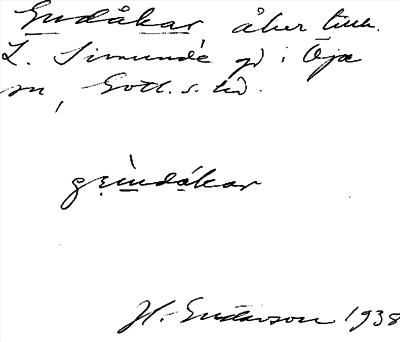 Grindåkar, åker tillh.
L. Simunde gd i Öja
sn, Gotl. s. hd.
grìndákar
H. Gustavson 1938